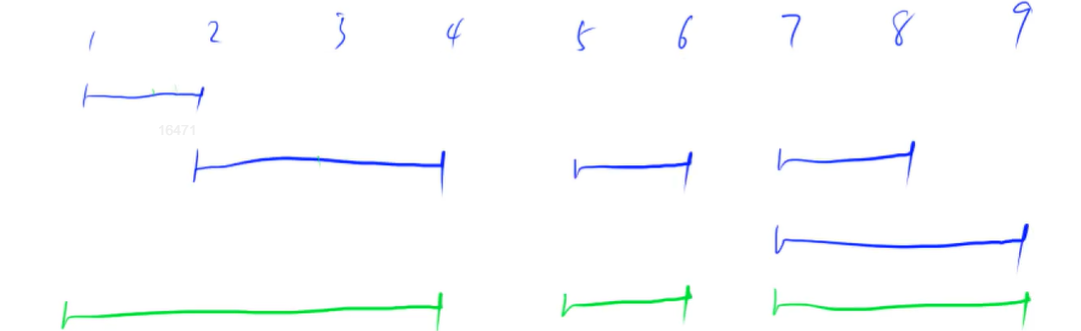 1 2 3 4 5 6 7 8 9
16471